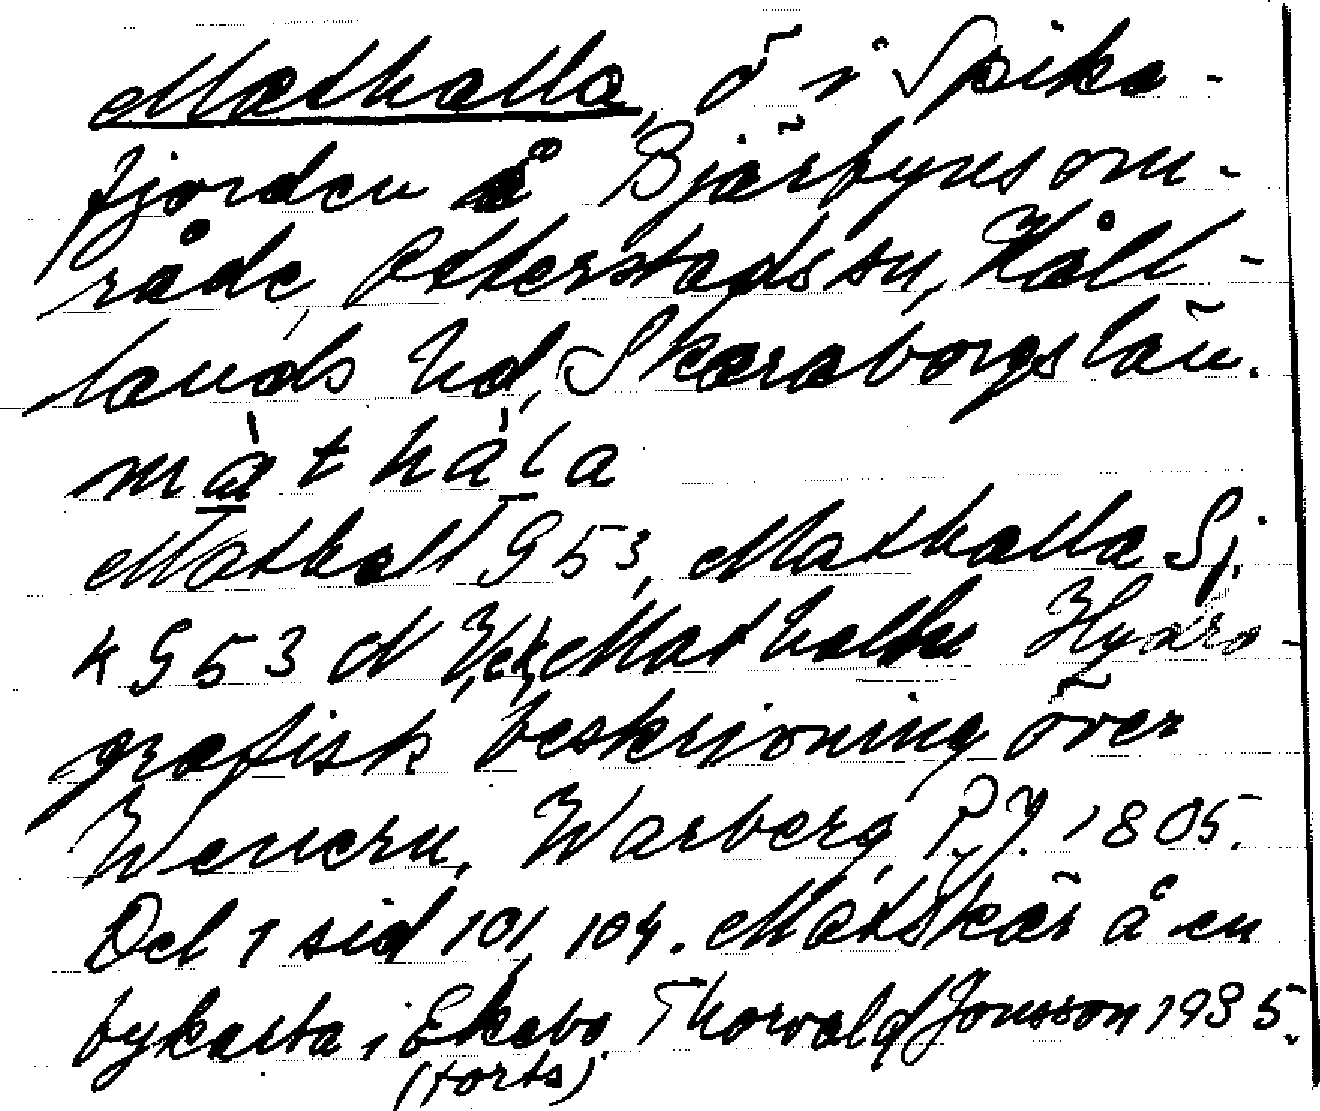 Mathalla, ö i Spika-
fjorden å Bjärbyns om-
råde, Otterstads sn, Kål-
lands hd, Skaraborgs län.
màt hàla
Mathall G53, Mathalla Sj.
k G53 N Mathallen Hydro-
grafisk beskrivning över
Wenern, Warberg, P.J. 1805.
Del 1 sid 101, 104. Matskär å en
bykarta i Ekebo Thorvald Jonsson 1935.
(forts)